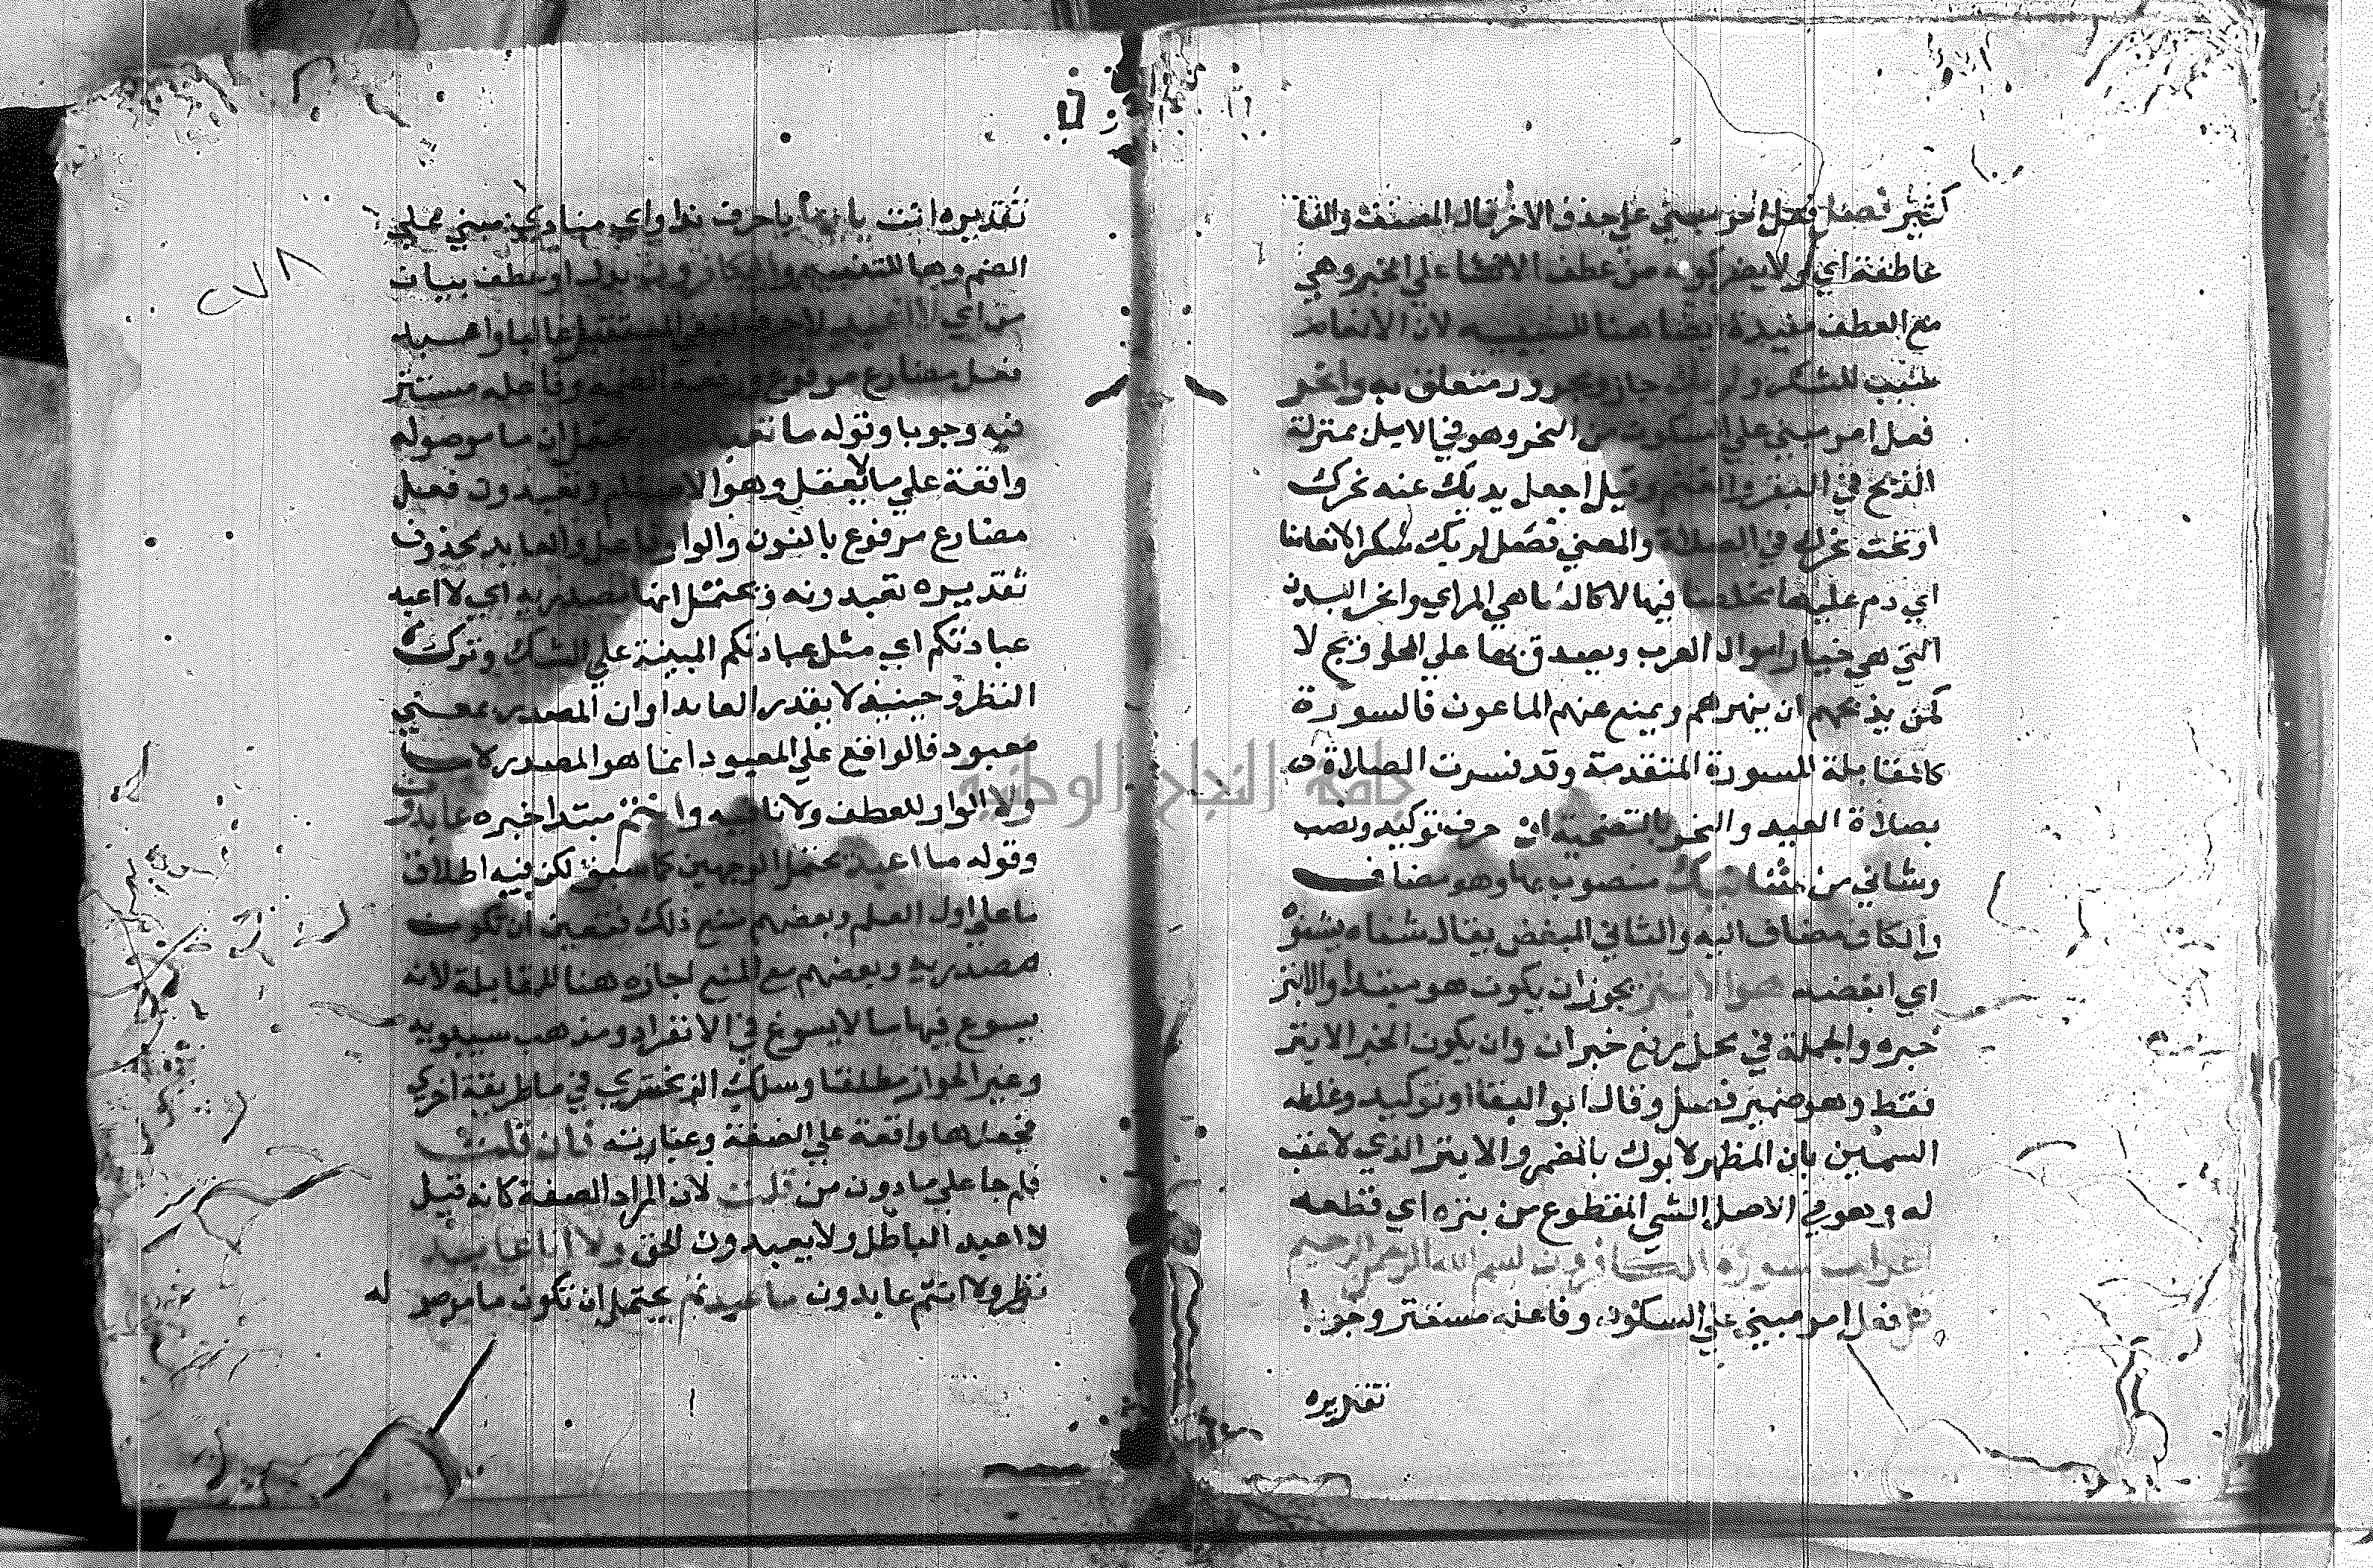 كثير فصل فعل امر مبني علي حذف الاخر قال المصنف والفا
عاطفة اي ولا يضر كونه من عطف الانشا علي الخبر وهي
مع العطف مفيدة ايضا هنا للسببيه لان الانعام
سبب للشكر و لربك جار ومجرور متعلق به وانحر
فعل امر مبني علي السكون من النحر وهو في الابل بمنزلة
الذبح في البقر والغنم وقيل اجعل يديك عند نحرك
او تحت نحرك في الصلاة والمعني فصل لربك شكرا لانعامنا
اي دم عليها مخلصا فيها لا كالساهي المراي وانحر البدن
التي هي خيار اموال العرب وتصدق بها علي المحاويج لا
كمن يذبحهم ان ينهرهم ويمنع عنهم الماعون فالسورة
كالمقابلة للسورة المتقدمة وقد فسرت الصلاة
بصلاة العيد والنحر بالتضحية ان حرف توكيد ونصب
وشاني من شانيك منصوب بها وهو مضاف
والكاف مضاف اليه والشاني المبغض يقال شناه يشنو
اي ابغضه هو الابتر يجوز ان يكون هو مبتدا والابتر
خبره والجملة في محل رفع خبر ان وان يكون الخبر الابتر
فقط وهو ضمير فصل وقال ابو البقا او توكيد وغلطه
السمين بان المظهر لا يوكد بالمضمر والابتر الذي لا عقب
له وهو في الاصل الشي المقطوع من بتره اي قطعه
اعراب سورة الكافرون بسم الله الرحمن الرحيم
قل فعل امر مبني علي السكون وفاعله مستتر وجوبا
تقديره
٢٧٨
تقديره انت يا ايها يا حرف ندا واي منادي مبني علي
الضم وها للتنبيه والكافرون بدل او عطف بيان
من اي لا اعبد لا حرف لنفي المستقبل غالبا واعبد
فعل مضارع مرفوع ورفعه الضمه وفاعله مستتر
فيه وجوبا وقوله ما تعبدون يحتمل ان ما موصوله
واقعة علي ما لا يعقل وهو الاصنام وتعبدون فعل
مضارع مرفوع بالنون والواو فاعل والعايد محذوف
تقديره تعبدونه ويحتمل انها مصدريه اي لا اعبد
عبادتكم اي مثل عبادتكم المبنية علي الشك وترك
النظر وحينيذ لا يقدر العايد او ان المصدر بمعني
معبود فالواقع علي المعبود انما هو المصدر لا ما
ولا الواو للعطف ولا نافيه وانتم مبتدا خبره عابدون
وقوله ما اعبد تحتمل الوجهين كما سبق لكن فيه اطلاق
ما علي اولي العلم وبعضهم منع ذلك فتعين ان تكون
مصدريه وبعضهم مع المنع اجازه هنا للمقابلة لانه
يسوغ فيها ما لا يسوغ في الانفراد ومذهب سيبويه
وغيره الجواز مطلقا وسلك الزمخشري في ما طريقة اخري
فجعلها واقعة علي الصفة وعبارته فان قلت
فلم جا علي ما دون من قلت لان المراد الصفة كانه قيل
لا اعبد الباطل ولا يعبدون الحق ولا انا عابد
نظر ولا انتم عابدون ما عبدتم يحتمل ان تكون ما موصو له
جامعة النجاح الوطنية